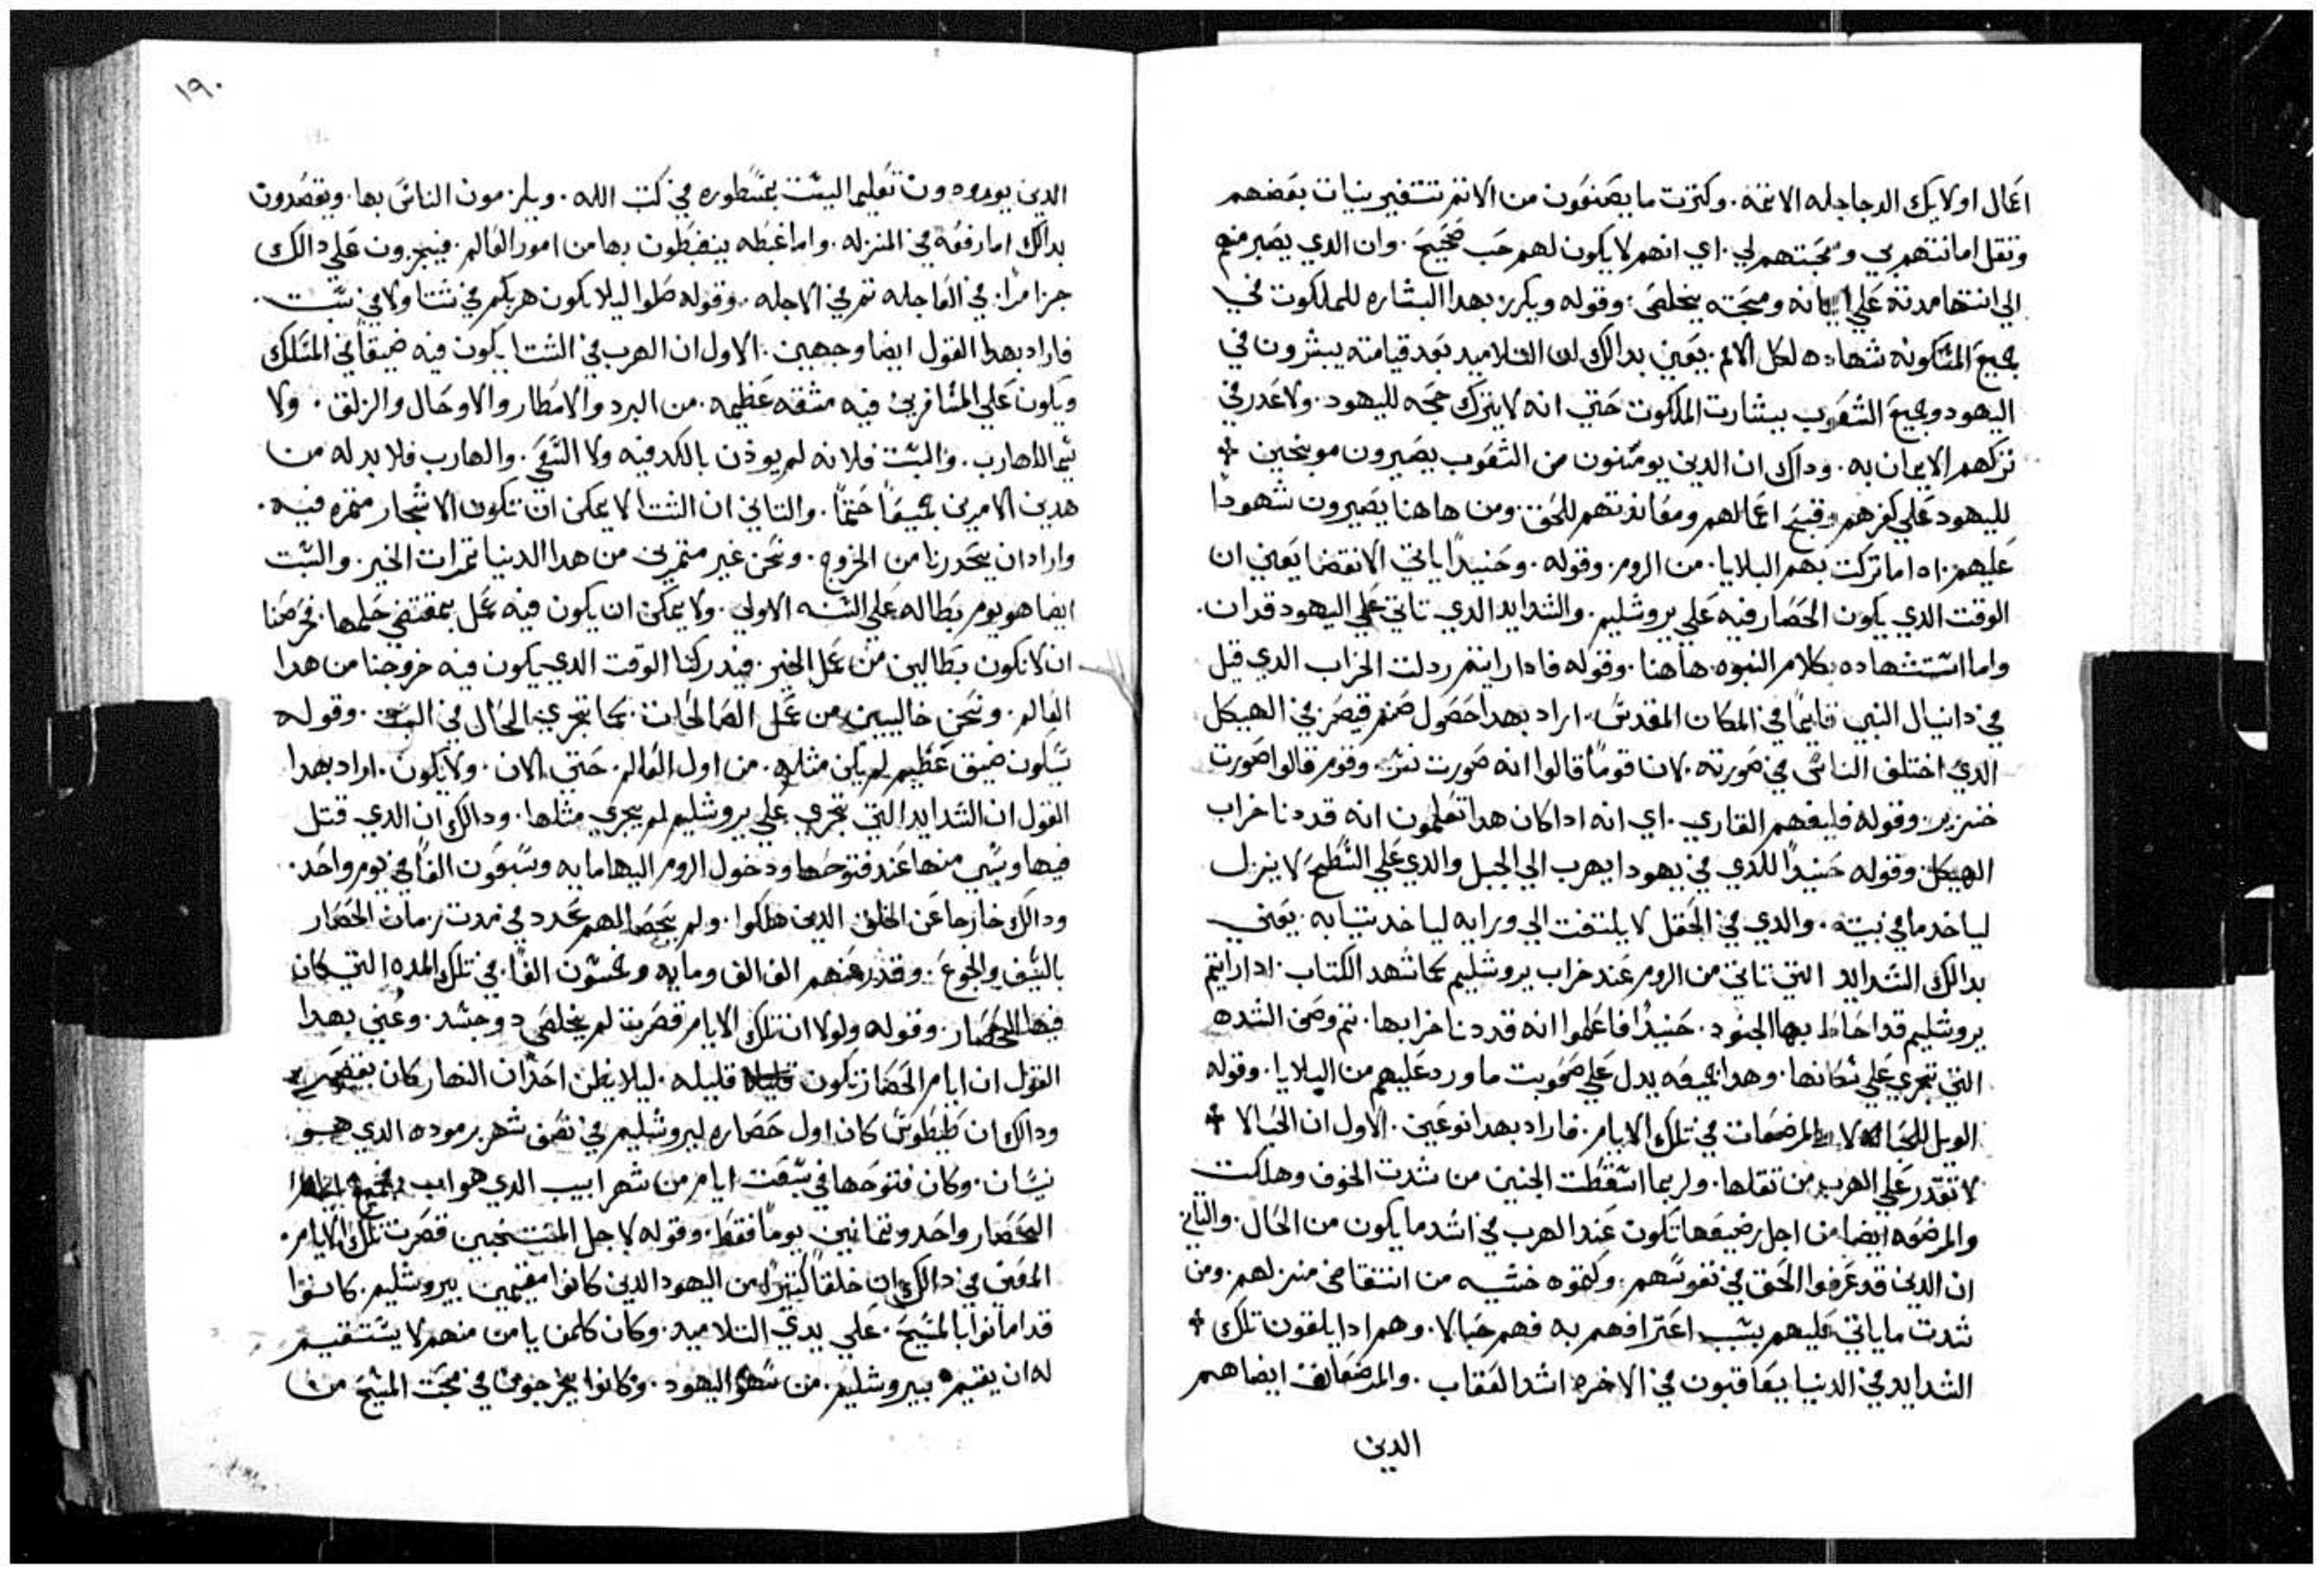 اعمال اولايك الدجاجله الاثمه. وكثرت ما يصنعون من الاثم تتغير نيات بعضهم
وتقل امانتهم بي ومحبتهم لي. اي انهم لا يكون لهم حب صحيح. وان الدي يصبر منهم
الي انتها مدته علي ايمانه ومحبته يخلص. وقوله ويكرز بهدا البشاره للملكوت في
جميع المسكونه شهاده لكل الامم. يعني بدالك ان التلاميد بعد قيامته يبشرون في
اليهود وجميع الشعوب ببشارت الملكوت حتي انه لا يترك حجه لليهود. ولا عدر في
تركهم الايمان به. وداك ان الدين يومنون من الشعوب يصيرون موبخين
لليهود علي كفرهم وقبح اعمالهم ومعاندتهم للحق. ومن هاهنا يصيرون شهودا
عليهم. ادا ما تركت بهم البلايا. من الروم. وقوله. وحنيدا ياتي الانقضا يعني ان
الوقت الدي يكون الحصار فيه علي يروشليم. والشدايد الدي تاتي علي اليهود قد ان.
واما استشهاده بكلام النبوه. هاهنا. وقوله فادا رايتم ردلت الخراب الدي قيل
في دانيال النبي قايما في المكان المقدس. اراد بهدا حصول صنم قيصر في الهيكل
الدي اختلف الناس في صورته. لان قوما قالوا انه صورت نسر. وقوم قالوا صورت
خنزير. وقوله فليفهم القاري. اي انه ادا كان هدا تعلمون انه قد دنا خراب
الهيكل. وقوله حنيدا للدي في يهودا يهرب الي الجبل والدي علي السطح لا ينزل
لياخد ما في بيته. والدي في الحقل لا يلتفت الي ورايه لياخد ثيابه. يعني
بدالك الشدايد التي تاتي من الروم عند خراب يروشليم كما شهد الكتاب. ادا رايتم
يروشليم قد احاط بها الجنود. حنيدا فاعلموا انه قد دنا خرابها. ثم وصف الشده
التي تجري علي سكانها. وهدا جميعه يدل علي صعوبت ما ورد عليهم من البلايا. وقوله
الويل للحبالا والمرضعات في تلك الايام. فاراد بهدا نوعين. الاول ان الحبالا
لا تقدر علي الهرب من ثقلها. ولربما اسقطت الجنين من شدت الخوف وهلكت
والمرضعه ايضا من اجل رضيعها تكون عند الهرب في اشد ما يكون من الحال. والثاني
ان الدين قد عرفوا الحق في نفوسهم. وكتموه خشيه من انتقاص منزلهم. ومن
شدت ما ياتي عليهم بسبب اعترافهم به فهم حبالا. وهم ادا يلقون تلك
الشدايد في الدنيا يعاقبون في الاخره اشد العقاب. والمرضعات ايضا هم
الدين
١٩٠
الدين يوردون تعليما ليست بمسطوره في كتب الله. ويلزمون الناس بها. ويقصدون
بدالك اما رفعه في المنزله. واما غبطه ينغبطون بها من امور العالم. فيجزون علي دالك
جزا مرا. في العاجله ثم في الاجله. وقوله صلوا ليلا يكون هربكم في شتا ولا في سبت.
فاراد بهدا القول ايضا وجهين. الاول ان الهرب في الشتا يكون فيه ضيقا في المسلك
ويكون علي المسافرين فيه مشقه عظيمه. من البرد والامطار والاوحال والزلق. ولا
سيما الهارب. والسبت فلانه لم يودن بالكد فيه ولا السعي. والهارب فلا بد له من
هدين الامرين جميعا حتما. والثاني ان الشتا لا يمكن ان تكون الاشجار مثمره فيه.
واراد ان يحدرنا من الخروج. ونحن غير مثمرين من هدا الدنيا ثمرات الخير. والسبت
ايضا هو يوم بطاله علي السنه الاولي. ولا يمكن ان يكون فيه عمل بمقتضي حكمها. فحرضنا
ان لا نكون بطالين من عمل الخير. فيدركنا الوقت الدي يكون فيه خروجنا من هدا
العالم. ونحن خاليين من عمل الصالحات. كما تجري الحال في السبت. وقوله
سيكون ضيق عظيم لم يكن مثله. من اول العالم. حتي الان. ولا يكون. اراد بهدا
القول ان الشدايد التي تجري علي يروشليم لم يجري مثلها. ودالك ان الدي قتل
فيها وسبي منها عند فتوحها ودخول الروم اليها مايه وسبعون الفا في يوم واحد.
ودالك خارجا عن الخلق الدين هلكوا. ولم يحصا لهم عدد في مدت زمان الحصار
بالسيف والجوع. وقدر عنهم الف الف ومايه وخمسون الفا. في تلك المده التي كان
فيها الحصار. وقوله ولولا ان تلك الايام قصرت لم يخلص دو جسد. وعني بهدا
القول ان ايام الحصار تكون قليله. ليلا يظن احد ان النهار كان بقصير
ودالك ان طيطوس كان اول حصاره ليروشليم في نصف شهر برموده الدي هو
نيسان. وكان فتوحها في سبعت ايام من شهر ابيب الدي هو اب
الحصار واحد وثمانين يوما فقط. وقوله لاجل المنتخبين قصرت تلك الايام.
المعني في دالك ان خلقا كثيرا من اليهود الدين كانوا مقيمين بيروشليم. كانوا
قد امانوا بالمسيح. علي يدي التلاميد. وكان كلمن يامن منهم لا يستقيم
له ان يقيم بيروشليم. من اليهود. وكانوا يخرجون في محبت المسيح من